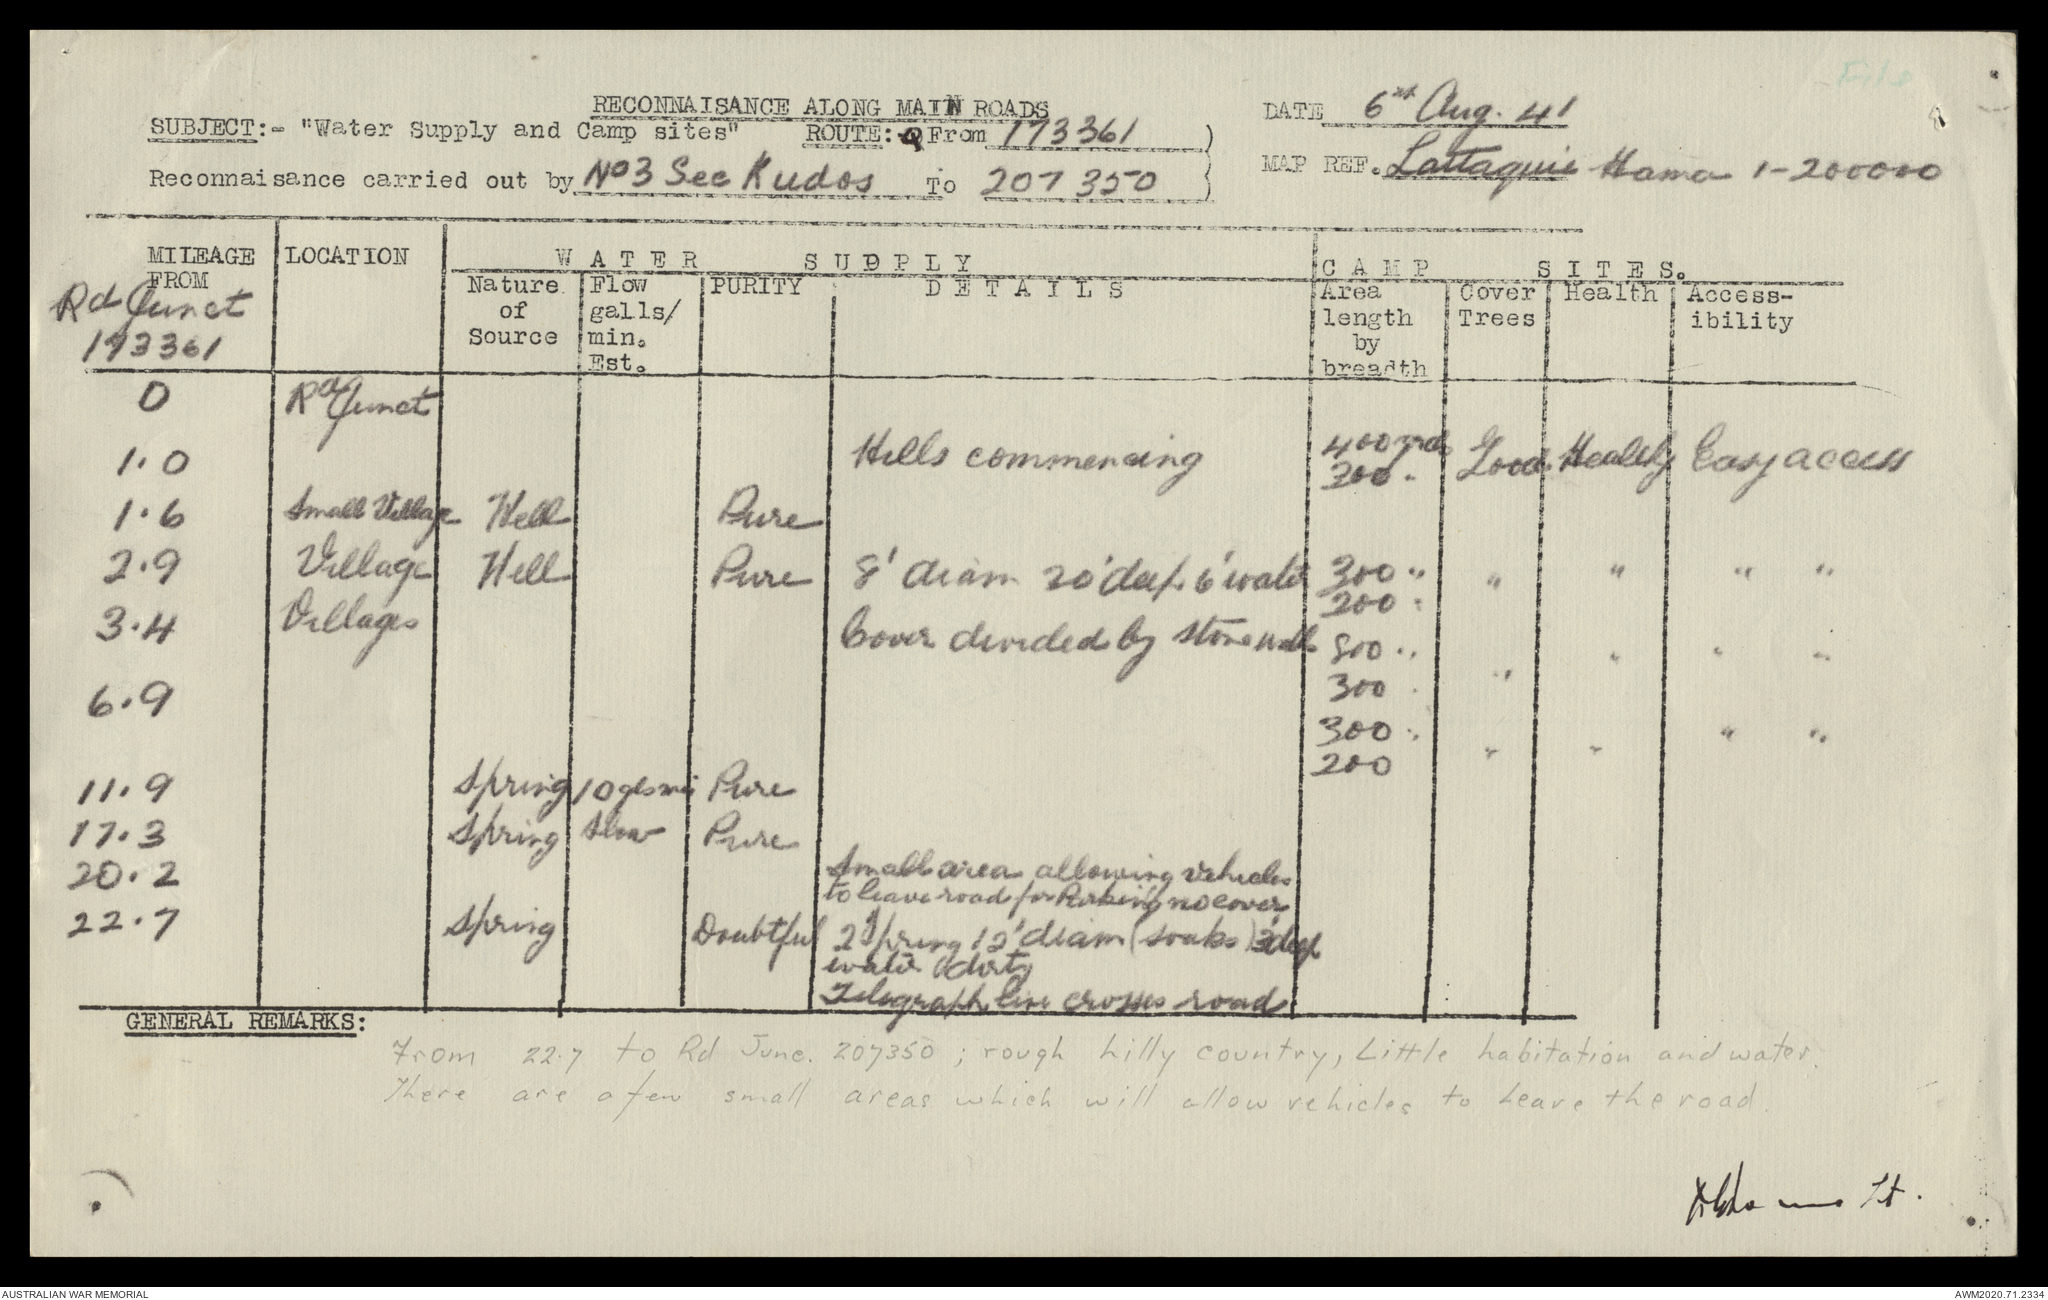 File
RECONNAISANCE ALONG MAIN ROADS
DATE 6th Aug. 41
SUBJECT:- "Water Supply and Camp sites" ROUTE:- From 173361 )
MAP REF. Lattaquie Hama 1-200000
Reconnaisance carried out by No 3 Sec Kudos To 207350 )
MILEAGE FROM Rd Junct 173361
LOCATION
WATER SUPPLY
Nature of Source
Flow galls/ min. Est.
PURITY
DETAILS
CAMP SITES.
Area length by breadth
Cover Trees
Health
Access- ibility
0 Rd Junct
1.0 Hills commencing 400 yds Good Healthy Easy access
200 "
1.6 Small Village Well Pure
2.9 Village Well Pure 8' diam 20' deep 6' water 300 " " " " "
200 "
3.4 Villages Cover divided by stone walls 800 " " " " "
300 "
6.9 300 " " " " "
200
11.9 Spring 10 gls min Pure
17.3 Spring Slow Pure
20.2 Small area allowing vehicles
to leave road for Parking no cover
22.7 Spring Doubtful 2 Spring 12' diam (soaks) 3' deep
water dirty
Telegraph line crosses road
GENERAL REMARKS:
From 22.7 to Rd Junc. 207350 ; rough hilly country, Little habitation and water.
There are a few small areas which will allow vehicles to leave the road.
Lt.
AUSTRALIAN WAR MEMORIAL
AWM2020.71.2334